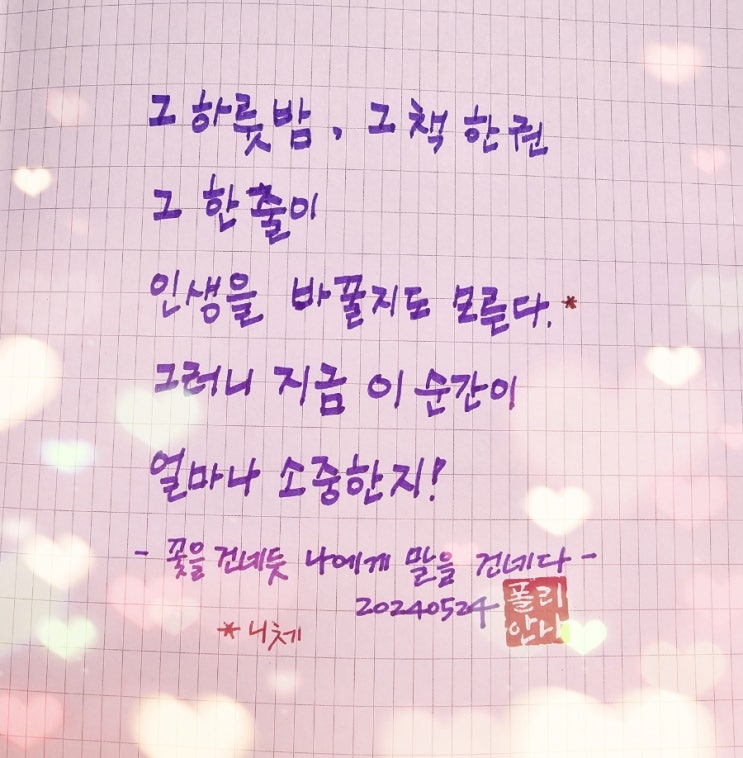 그 하룻밤, 그 책 한 권
그 한 줄이
인생을 바꿀지도 모른다.*
그러니 지금 이 순간이
얼마나 소중한지!
- 꽃을 건네듯 나에게 말을 건네다 -
20240524 폴리안나
* 니체